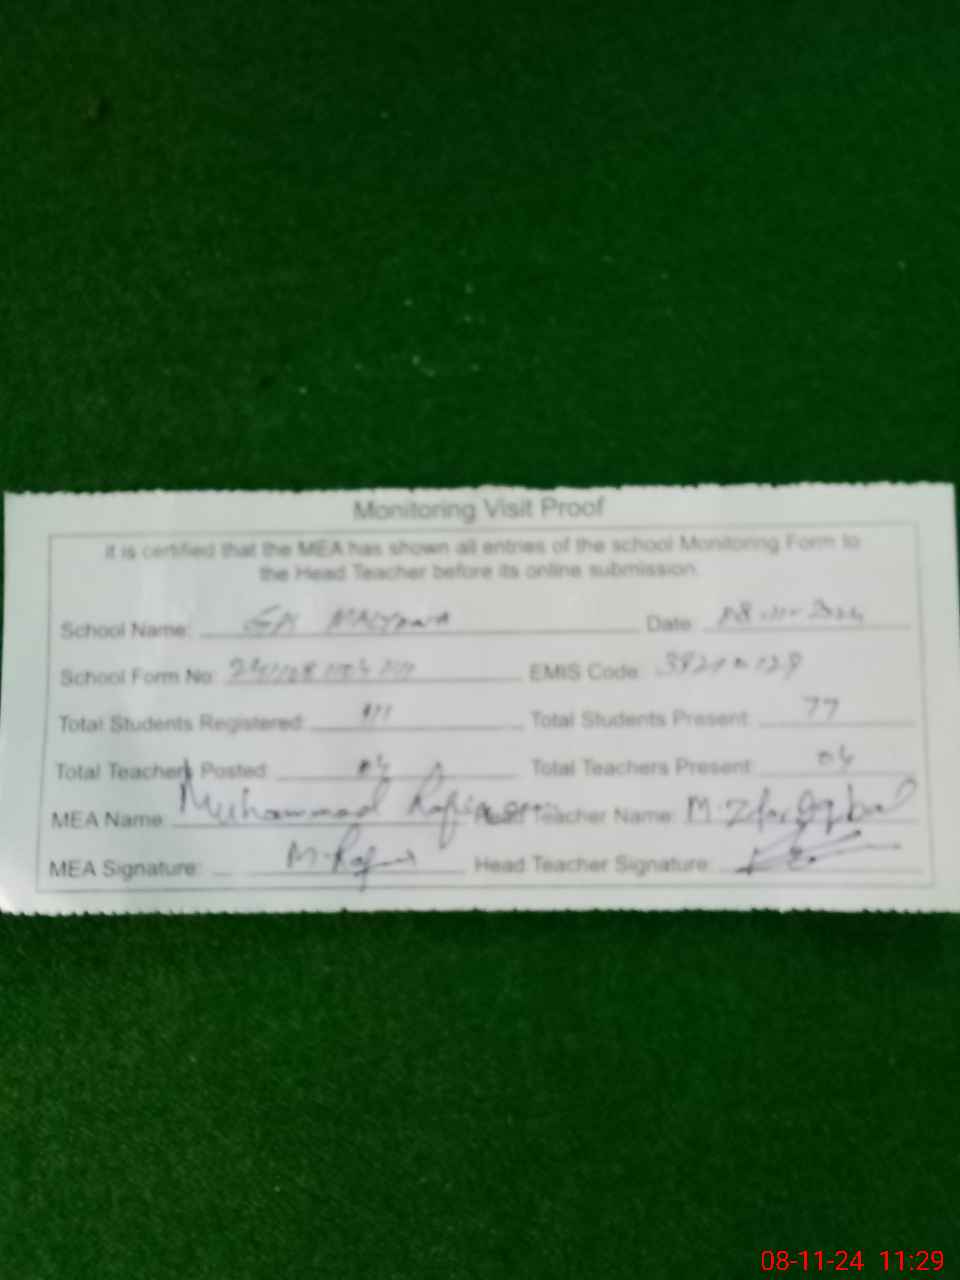 Monitoring Visit Proof
It is certified that the MEA has shown all entries of the school Monitoring Form to
the Head Teacher before its online submission.
School Name: Date 08-11-2024
School Form No: EMIS Code:
Total Students Registered: 111 Total Students Present: 77
Total Teachers Posted: 04 Total Teachers Present: 04
MEA Name: Muhammad Head Teacher Name: M. Iqbal
MEA Signature: Head Teacher Signature:
08-11-24 11:29